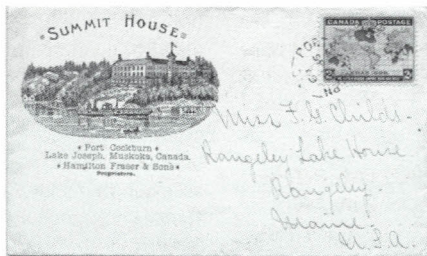 SUMMIT HOUSE
Port Cockburn
Lake Joseph, Muskoka, Canada.
Hamilton Fraser & Sons
Proprietors.
CANADA POSTAGE
XMAS 1898
Miss F. G. Childs.
Rangeley Lake House
Rangeley.
Maine.
U.S.A.